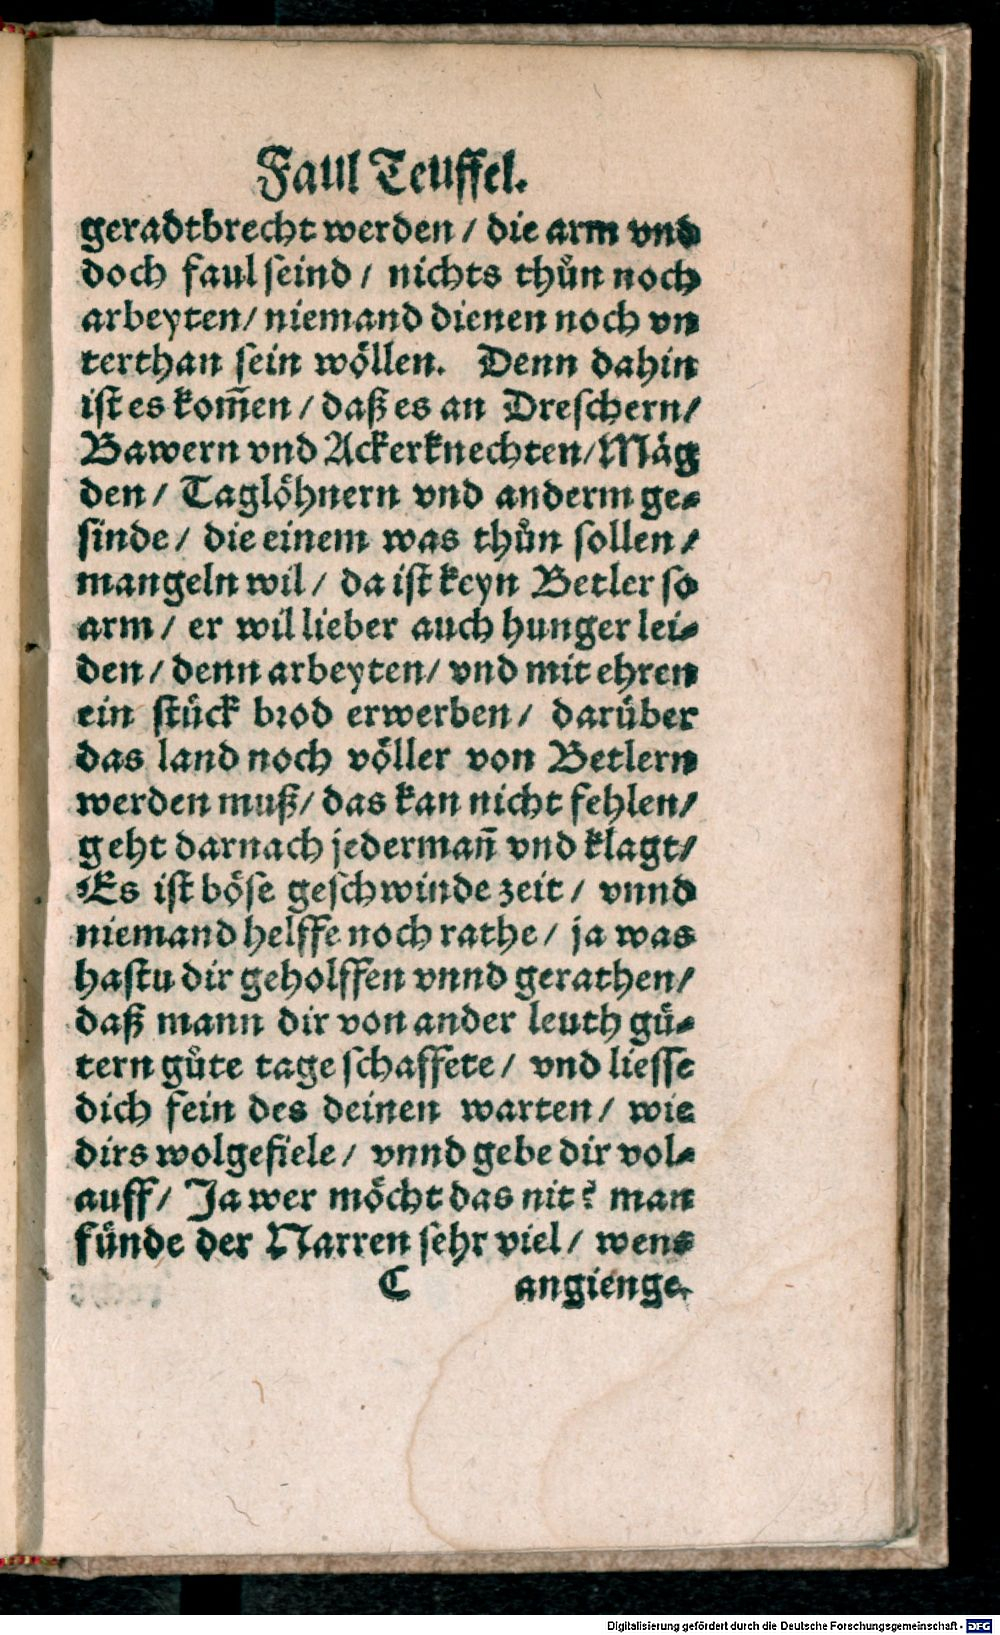 Faul Teuffel.
geradtbrecht werden / die arm vnd
doch faul seind / nichts thůn noch
arbeyten / niemand dienen noch vn
terthan sein wöllen. Denn dahin
ist es kom̄en / daß es an Dreschern /
Bawern vnd Ackerknechten / Mäg
den / Taglöhnern vnd anderm ge⸗
sinde / die einem was thůn sollen /
mangeln wil / da ist keyn Betler so
arm / er wil lieber auch hunger lei⸗
den / denn arbeyten / vnd mit ehren
ein stück brod erwerben / darüber
das land noch völler von Betlern
werden muß / das kan nicht fehlen /
geht darnach jederman̄ vnd klagt /
Es ist böse geschwinde zeit / vnnd
niemand helffe noch rathe / ja was
hastu dir geholffen vnnd gerathen /
daß mann dir von ander leuth gü⸗
tern gůte tage schaffete / vnd liesse
dich fein des deinen warten / wie
dirs wolgefiele / vnnd gebe dir vol⸗
auff / Ja wer möcht das nit? man
fünde der Narren sehr viel / wens
C angienge.
Digitalisierung gefördert durch die Deutsche Forschungsgemeinschaft - DFG